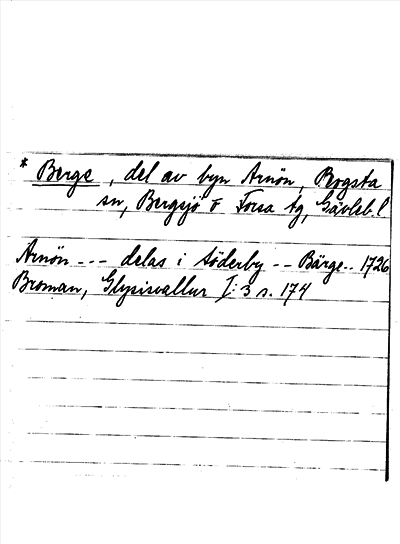 * Berge, del av byn Arnön, Rogsta
sn, Bergsjö o Forsa tg, Gävleb. l
Arnön --- delas i söderby -- Bärge -- 1726
Broman, Glysisvallur I:3 s. 174